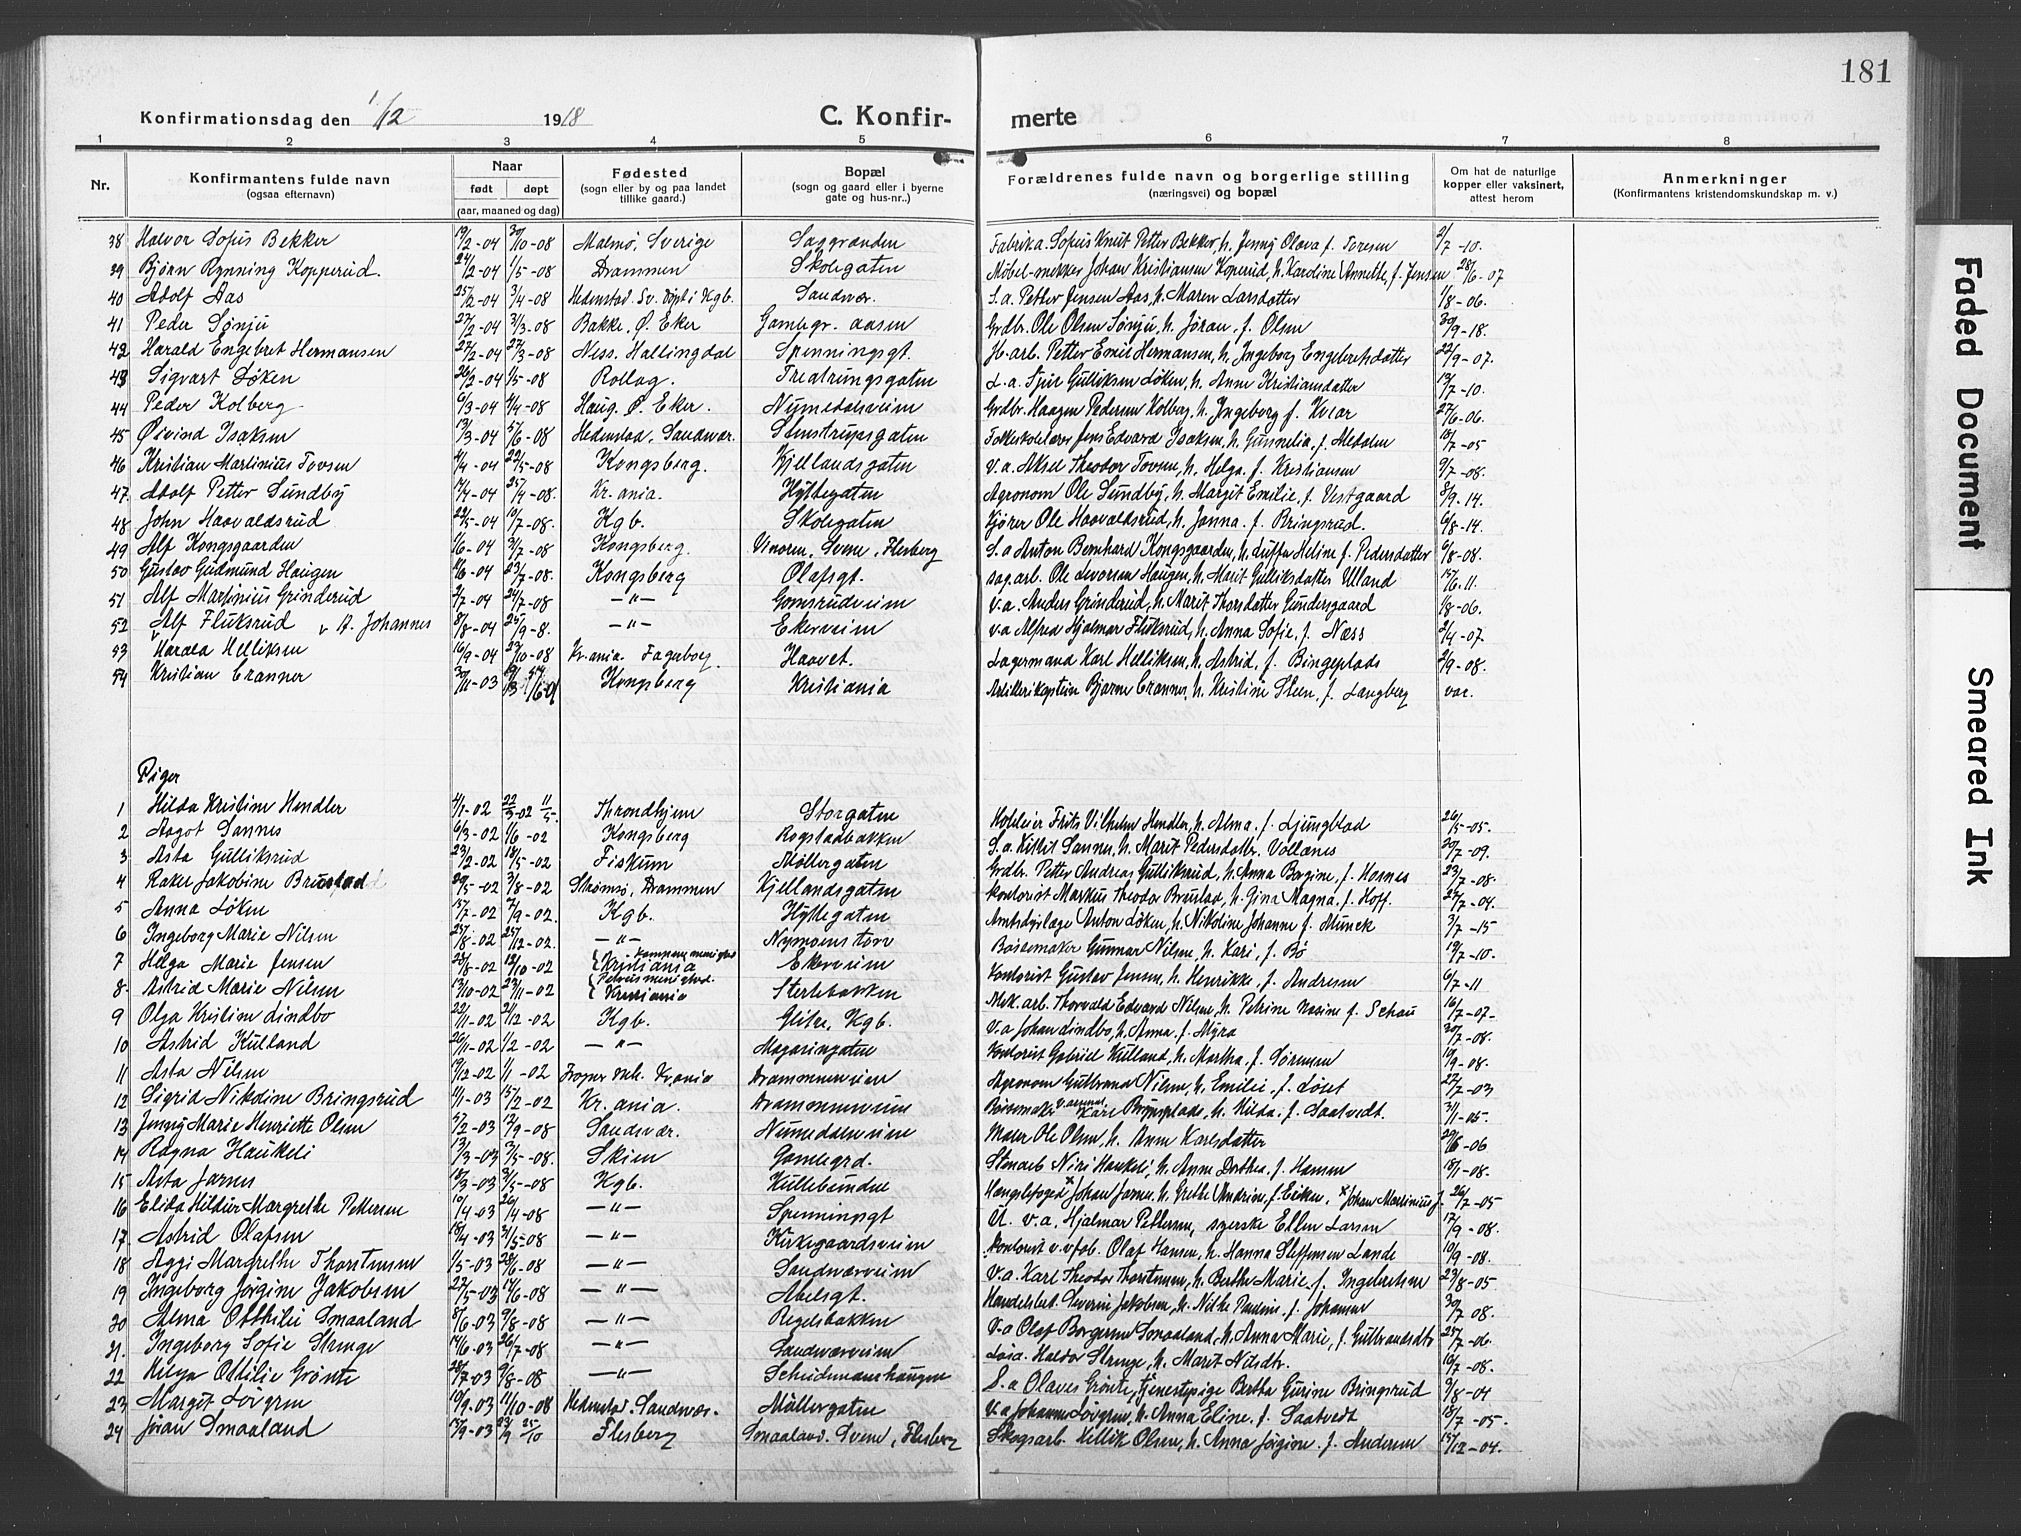 181
Konfirmationsdag den 1/12 1918 C. Konfirmerte
1 2 3 4 5 6 7 8
Nr. Konfirmantens fulde navn (ogsaa efternavn) Naar født døpt (aar, maaned og dag) Fødested (sogn eller by og paa landet tillike gaard.) Bopæl (sogn og gaard eller i byerne gate og hus-nr..) Forældrenes fulde navn og borgerlige stilling (næringsvei) og bopæl Om hat de naturlige kopper eller vaksinert, attest herom Anmerkninger (Konfirmantens kristendomskundskap m. v.)
38 Halvor Sofus Bekker 19/2-04 30/10-08 Malmø, Sverige Saggrænden Fabrika. Sofus Knut Petter Bekker, h. Jenny Olava f. Toresen 2/7-10.
39 Bjørn Rynning Kopperud. 24/2-04 1/5-08 Drammen Skolegaten Møbel-mekker Johan Kristiansen Koperud, h. Kardine Annette, f. Jensen 28/6-07
40 Adolf Aas 25/2-04 3/4-08 Hedenstad. Sv. døpt i Kgb. Sandsvær. S.a. Petter Jensen Aas, h. Maren Larsdatter 1/8-06.
41 Peder Sønju 27/2-04 3/3-08 Bakke, Ø. Eker Gamlegr. aasen Grdbr. Ole Olsen Sønju, h. Jøran, f. Olsen 30/9-18.
42 Harald Engebret Hermansen 27/2-04 27/3-08 Ness. Hallingdal Spenningsgt. Petter Emil Hermansen, h. Ingeborg Engebretsdatter 22/9-07.
43 Sigvart Løken 26/2-04 1/5-08 Rollag. L.a. Gulliksen Løken, h. Anne Kristiansdatter 19/7-10.
44 Peder Kolberg 6/3-04 4/4-08 Haug. Ø. Eker. Numedalsveien Grdbr. Haagen Pedersen Kolberg, h. Ingeborg f. Hvar 27/6-06.
45 Øivind Isaksen 13/3-04 5/6-08 Hedenstad, Sandsvær. Stenstrupsgaten Folkeskolelærer Jens Edvard Isaksen, h. Gunnelia, f. Medalen 18/7-05
46 Kristian Martinius Tovsen 4/4-04 22/5-08 Kongsberg. Kjellandsgaten v.a. Aksel Theodor Tovsen, h. Helga f. Kristiansen 9/7-08.
47. Adolf Petter Sundby 7/4-04 25/4-08. Kr.ania. Hyttegaten Agronom Ole Sundby, h. Margit Emilie, f. Vestgaard 8/9-14.
48 John Haavaldsrud 22/5-04 10/7-08. Kgb. Skolegaten Kjører Ole Haavaldsrud, h. Janna. f. Bringsrud. 6/8-14.
49 Alf Kongsgaarden 1/6-04 3/7-08 Kongsberg. Vinoren, Svene, Flesberg S.a Anton Bernhard Kongsgaarden, h. Heline f. Pedersdatter 6/8-08.
50 Gustav Gudmund Haugen 4/6-04 23/7-08. Kongsberg Olafsgt. sag.arb. Ole Levorsen Haugen, h. Marit Gulliksdatter Ulland 15/6.11.
51 Alf Martinius Grinderud 2/7-04 24/7-08 —"— Gomsrudveien v.a. Anders Grinderud, h. Marit Thorsdatter Gundersgaard 1/8-06.
52 Alf Fluksrud v A. Johannes 8/8-04 25/9-8. —"— Ekerveien v.a Alfred Hjalmar Fluksrud, h. Anna Sofie, f. Næss 2/4-07.
53 Harald Helliksen 16/9-04 23/10-08 Kr.ania. Fagerborg Haavet. Lagermand Karl Helliksen, h. Astrid, f. Bingeplads 2/9-08.
54 Kristian Cranner 30/11-03 Kongsberg Kristiania Artillerikaptein Bjarne Cranner, h. Kristine Steen, f. Langberg vac.
Piger
1 Hilda Kristine Hendler 4/1-02 22/3-02 11/5. Throndhjem Storgaten Frits Vilhelm Hendler, h. Alma. f. Ljungblad 26/5-05.
2 Aagot Sannes 6/3-02 1/6-02 Kongsberg Rogstadbakken S.a. Kittil Sannes, h. Marit Pedersdatter Vollænes 20/7-09.
3 Asta Gulliksrud 23/2-02 18/5-02 Fiskum Møllergaten Grdbr. Petter Andreas Gulliksrud, h. Anna Bergine, f. Hosnes 23/7-08.
4 Raker Jakobine Brustad 29/5-02 3/8-02 Strømsø, Drammen Kjellandsgaten Kontorist Markus Theodor Brustad, h. Gina Magna. f. Hoff. 27/7-04.
5 Anna Løken 15/7-02 7/9-02. Kgb. Hyttegaten Amtsdyrlæge Anton Løken, h. Nikoline Johanne f. Munck 3/7-15
6 Ingeborg Marie Nilsen 25/8-02 25/12-02. —"— Nymoenstorv Bøssemaker Gunnar Nilsen, h. Kari, f. Bø 19/7-10.
7 Helga Marie Jensen 23/8-02 12/10-02 Kampens menighed Kristiania Ekerveien Kontorist Gustav Jensen, h. Henrikke, f. Andresen 6/7-11
8. Astrid Marie Nilsen 13/10-02 23/11-02 Petrus menighed. Kristiania Mek.arb. Thorvald Edvard Nilsen, h. Petrine Nasine f. Schau 16/7-07-
9 Olga Kristine Lindbo 22/11-02 21/12-02 Kgb. Glitre, Kgb. v.a Johan Lindbo, h. Anna, f. Myra 30/7-08.
10 Astrid Kulland 26/11-02 1/2-02 —"— Magasingaten Kontorist Gabriel Kulland, h. Martha, f. Sørensen 10/9-08.
11 Asta Nilsen 19/12-02 1/1-02 Drammensveien Agronom Gulbrand Nilsen, h. Emilie, f. Løset 27/7-03
12 Sigrid Nikoline Bringsrud 4/1-03 15/2-02 Kr.ania. Drammensveien Bøssemaker Karl Bringsrud, h. Hilda, f. Saatvedt. 31/1-05.
13 Jenny Marie Henriette Olsen 5/2-03 13/9-08 Sandsvær. Numedalsveien Maler Ole Olsen, h. Anne Karlsdatter 29/6-06
14 Ragna Haukeli 13/3-03 3/5-08. Skien Gamlegrd. Stenarb Haukeli, h. Anne Dorthea, f. Hansen 18/1-08.
15 Asta Jarnes 18/3-03 3/5-08 Kgb. x Johan Jarnes, h. Grethe Andrine, f. Eriksen. x Johan Martinius J. 26/7-05
16 Elida Hildur Margrethe Pettersen 19/4-03 26/4-08 —"— Spenningsgt U. v.a. Hjalmar Pettersen, syerske Ellen Larsen 17/9-08.
17. Astrid Olafsen 18/4-03 31/5-08 —"— Kirkegaardsveien Kontorist v. vfab. Olaf Hansen, h. Hanna Steffensen Lande 10/9-08.
18 Aggi Margrethe Thorstensen 1/5-03 28/6-08 —"— Sandsværveien v.a. Karl Theodor Thorstensen, h. Berthe Marie, f. Ingebretsen 23/8-05
19 Ingeborg Jørgine Jakobsen 22/5-03 14/6-08 —"— Abelsgt. Handelsbet. Severin Jakobsen, h. Nilke Pauline, f. Johansen 30/7 08.
20 Alma Otthilie Smaaland 8/6-03 9/8-08 —"— V.a Olaf Borgersen Smaaland, h. Anna Marie, f. Gulbrandsdtr 25/7-06.
21. Ingeborg Sofie Strenge 14/6-03 26/7-08 —"— Sandsværveien Løsa. Haldor Strenge, h. Marit Nilsdtr. 10/7-08.
22 Helga Ottilie Grønte 28/7-03 9/8-08 —"— Scheidemannhaugen S.a Olaves Grønte, tjenestepige Bertha Gurine Bringsrud 9/8-04
23 Margit Løvgren 19/9-03 11/10-08 Hedenstad. Sandsvær. Møllergaten v.a. Johannes Løvgren, h. Anna Eline, f. Saatvedt 18/7-05.
24 Jøran Smaaland 15/9-03 23/9 25/10 Flesberg Smaaland. Svene, Flesberg Skogsarb. Hellik Olsen, h. Anna Jørgine. f. Andersen 15/12-04.
Faded Document
Smeared Ink